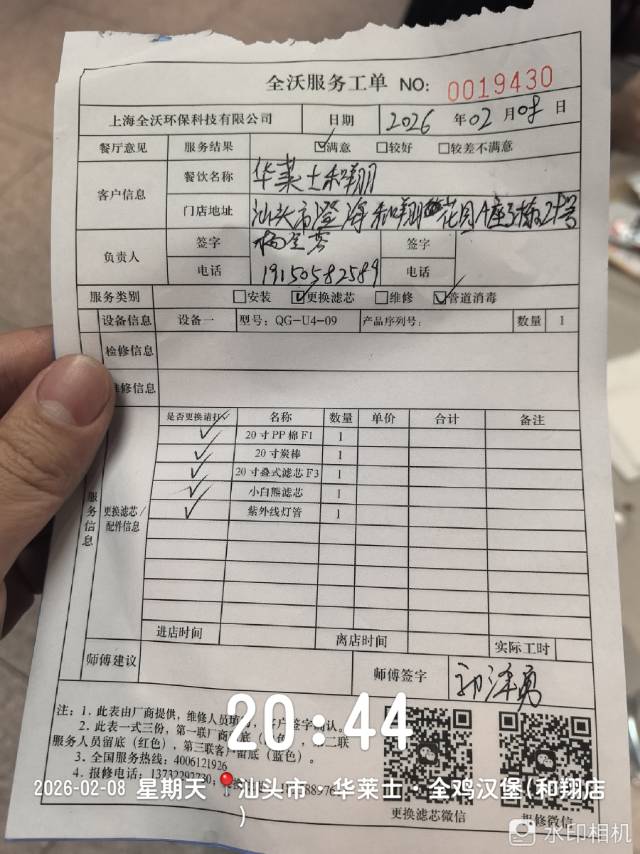 全沃服务工单 NO: 0019430
上海全沃环保科技有限公司 日期 2026 年 02 月 08 日
餐厅意见 服务结果 ☑满意 □较好 □较差不满意
客户信息 餐饮名称 华莱士和翔
门店地址 汕头市澄海和翔花园A座
负责人 签字 签字
电话 19150582589 电话
服务类别 □安装 ☑更换滤芯 □维修 ☑管道消毒
设备信息 设备一 型号: QG-U4-09 产品序列号: 数量 1
检修信息
维修信息
服务信息 更换滤芯/配件信息 是否更换请打√ 名称 数量 单价 合计 备注
✓ 20寸PP棉F1 1
✓ 20寸炭棒 1
✓ 20寸叠式滤芯F3 1
✓ 小白熊滤芯 1
✓ 紫外线灯管 1
进店时间 离店时间 实际工时
师傅建议 师傅签字
注: 1. 此表由厂商提供, 维修人员填写, 客户签字确认。
2. 此表一式三份, 第一联厂商留底
服务人员留底 (红色)、第三联客户留底 (蓝色)。
3. 全国服务热线: 4006121926
4. 报修电话:
更换滤芯微信 报修微信
20:44
2026-02-08 星期天 汕头市·华莱士·全鸡汉堡(和翔店)
水印相机